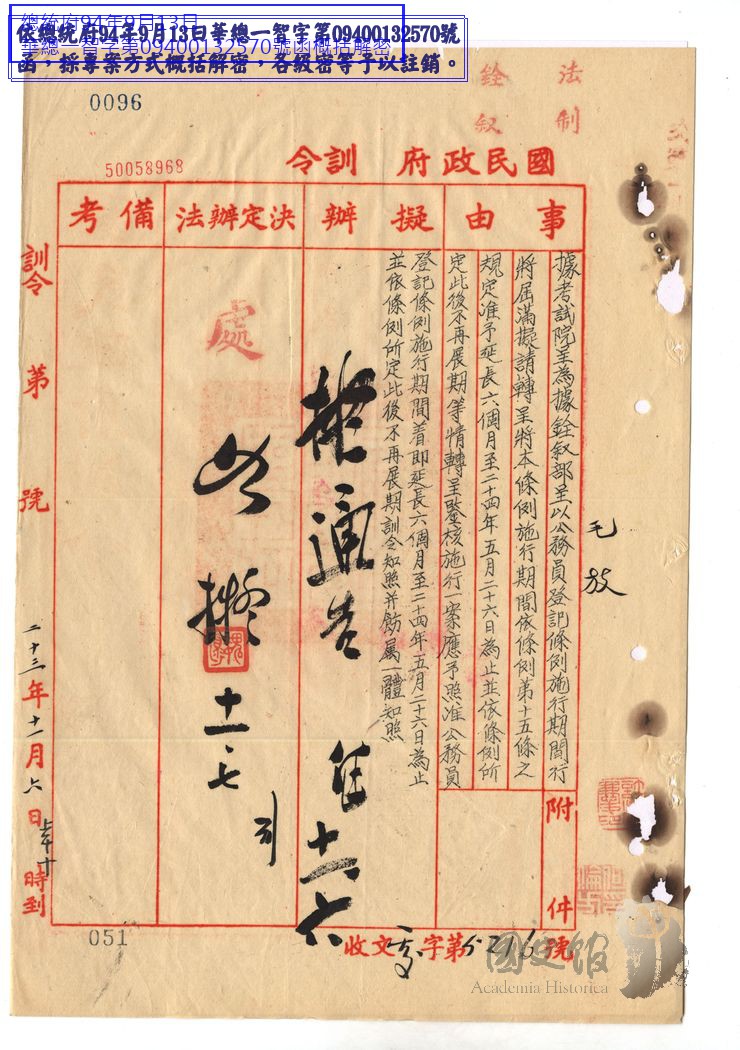 總統府94年9月13日
華總一智字第09400132570號函概括解密
依總統府94年9月13日華總一智字第09400132570號
函，採專案方式概括解密，各級密等予以註銷。
0096
50058968
法制
銓叙
國民政府 訓令
事由
擬辦
決定辦法
備考
據考試院呈為據銓叙部呈以公務員登記條例施行期間行
將屆滿擬請轉呈將本條例施行期間依條例第十五條之
規定准予延長六個月至二十四年五月二十六日為止並依條例所
定此後不再展期等情轉呈鑒核施行一案應予照准公務員
登記條例施行期間着即延長六個月至二十四年五月二十六日為止
並依條例所定此後不再展期訓令知照并飭属一體知照
附件
擬通告
十一、六
處
如擬
十一、七
訓令 第 號
二十三年十一月六日上午十時到
收文 字第5216號
051
國史館
Academia Historica